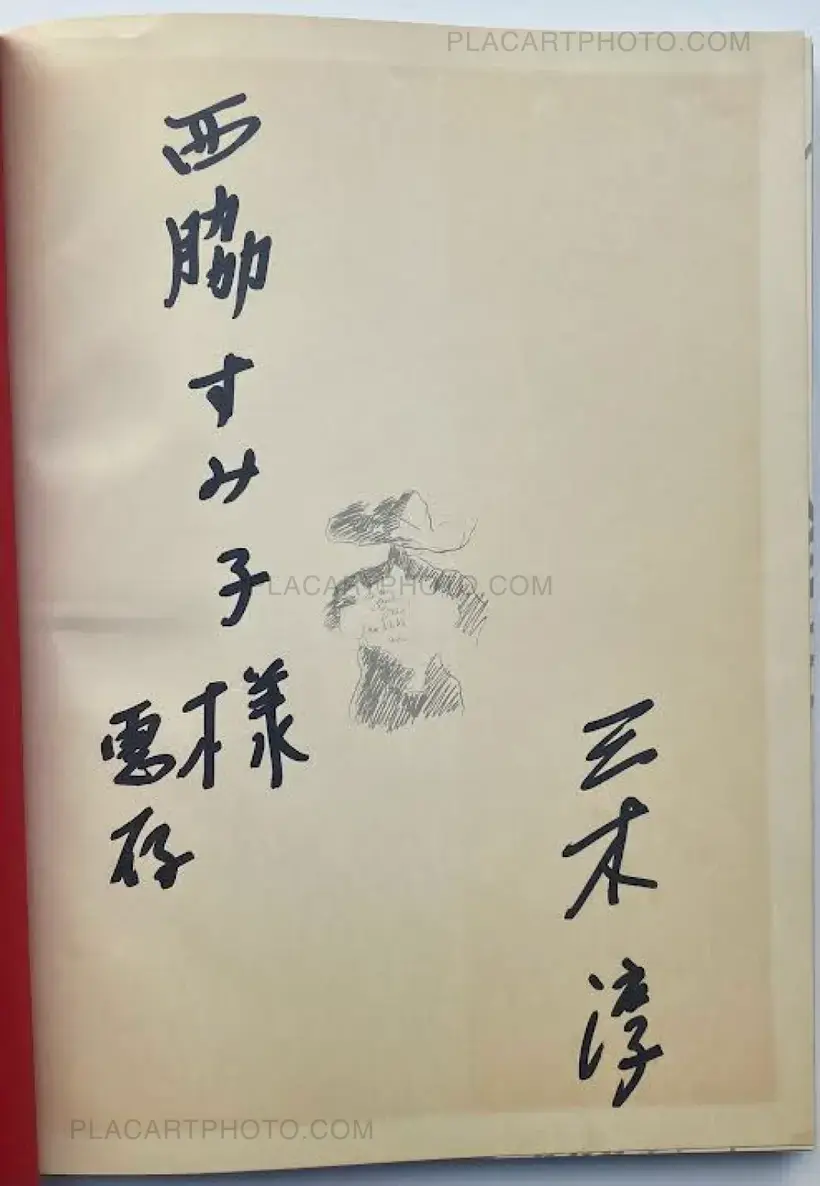 PLACARTPHOTO.COM
西脇すみ子様
恵存
PLACARTPHOTO.COM
三木淳
PLACARTPHOTO.COM